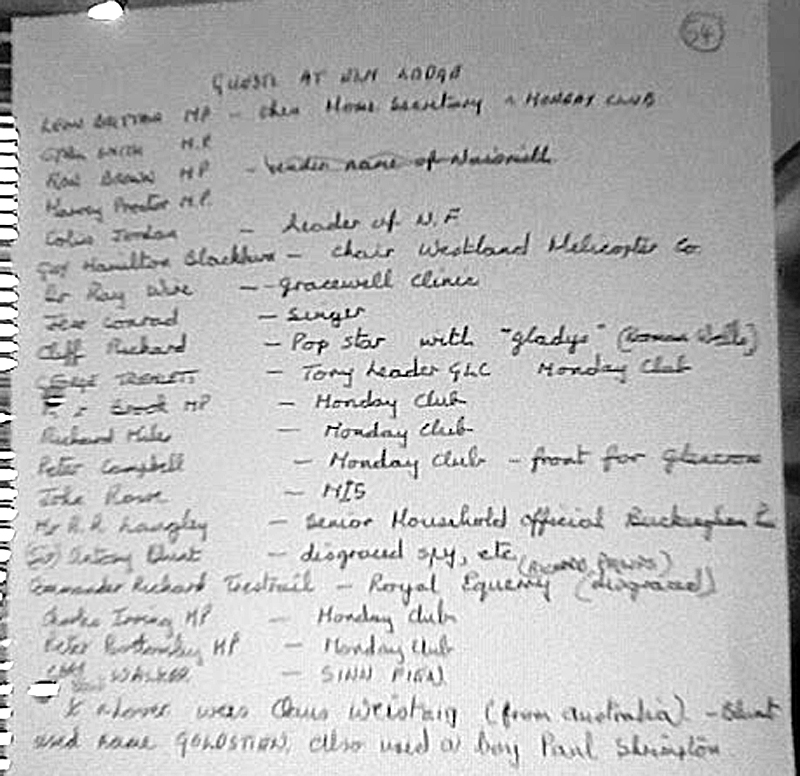 54
GUESTS AT ELM LODGE
LEON BRITTAN MP - then Home Secretary & MONDAY CLUB
CYRIL SMITH M.P.
RON BROWN MP - under name of Naismith
Harvey Proctor M.P.
Colin Jordan - Leader of N.F
Guy Hamilton Blackburn - Chair Westland Helicopter Co.
Dr Ray Wire - Gracewell Clinic
Jess Conrad - Singer
Cliff Richard - Pop star with "gladys"
GEORGE TREMLETT - Tory Leader GLC Monday Club
MP - Monday Club
Richard Miles - Monday Club
Peter Campbell - Monday Club - front for
John Rowe - MI5
Mr R. R. Langley - Senior Household official Buckingham
(Sir) Antony Blunt - disgraced spy, etc
Commander Richard Trestrail - Royal Equerry (disgraced)
Charles Irving MP - Monday Club
Peter Bottomley MP - Monday Club
WALKER - SINN FIEN
& above were (from Australia) - Blunt
used name GOLDSTIEN, also used a boy Paul